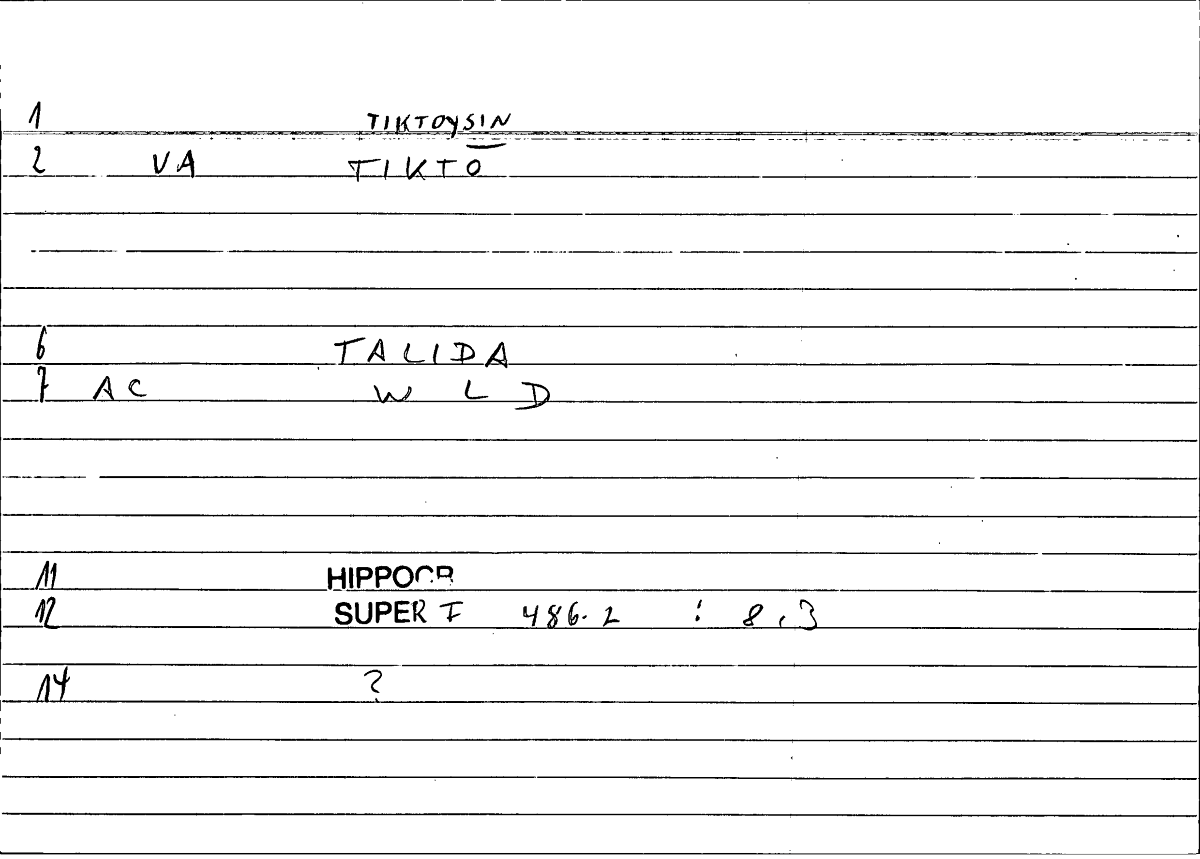 1 TIKTOYSIN
2 VA TIKTO
6 TALIDA
7 AC W L D
11 HIPPOCR
12 SUPER I 486.2 : 8,3
14 ?